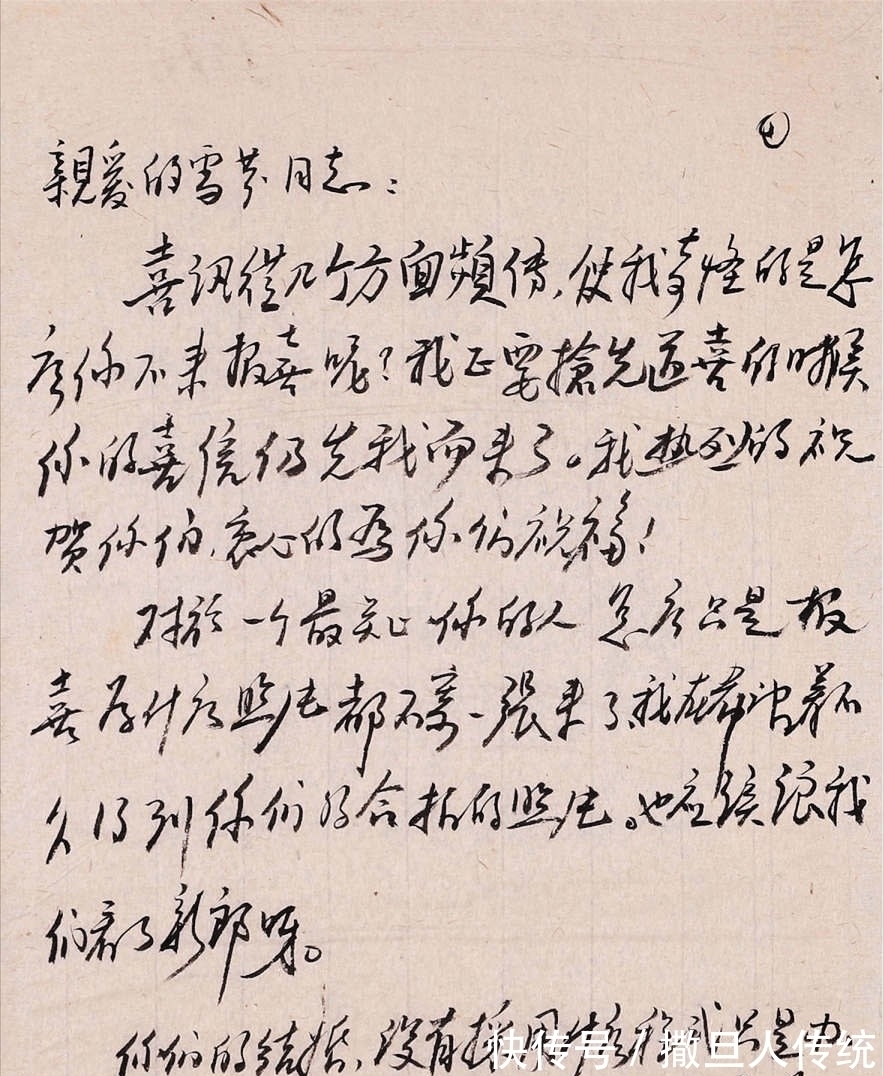 ①
親爱的雪芬同志：
喜訊從几个方面頻傳，使我奇怪的是怎
麽你不来报喜呢？我正要搶先道喜的时候
你的喜信仍先我而来了。我热烈的祝
贺你们，衷心的为你们祝福！
对於一个最关心你的人怎麽只是报
喜为什麽照片都不寄一張来了我在希望着不
久得到你们的合拍的照片。也应該讓我
们看了新郎呀。
你们的结婚，没有採用什麽仪式只是
快传号 / 撒旦人传统